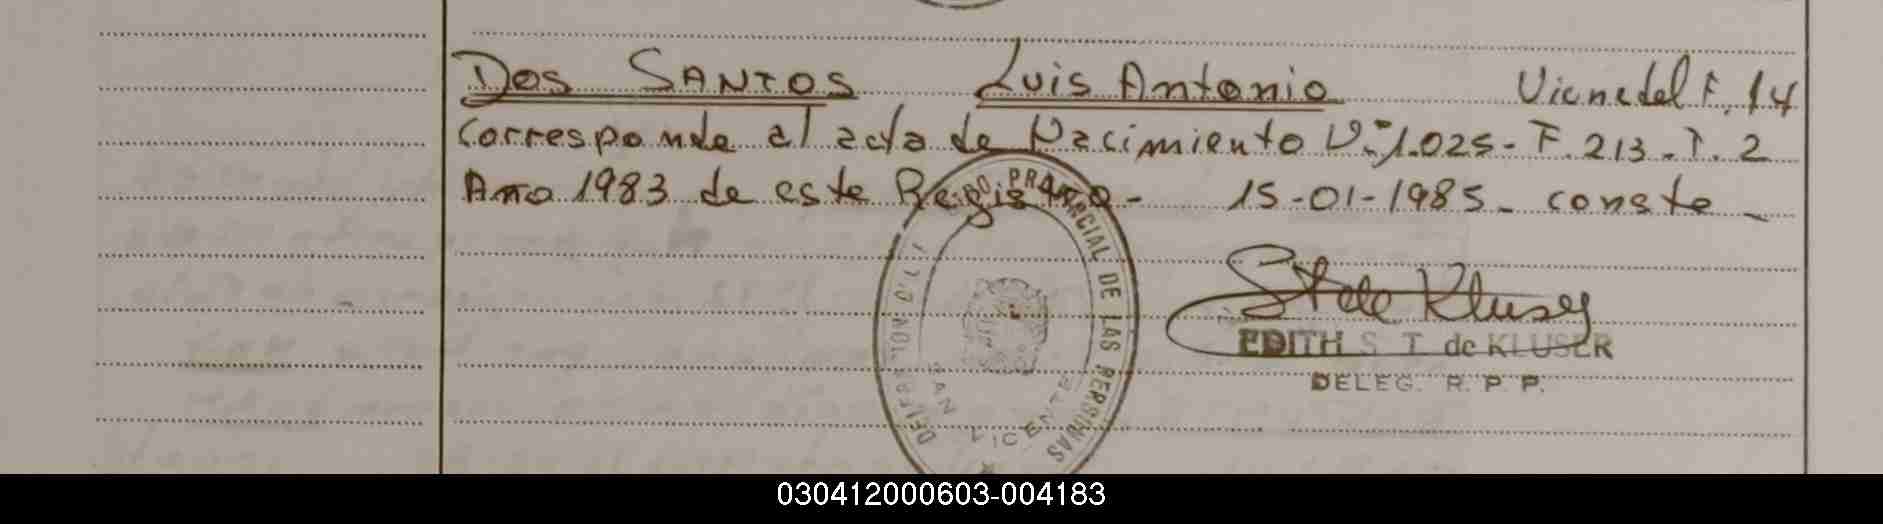 DOS SANTOS Luis Antonio Viene del F. 14
Corresponde al acta de Nacimiento Nº 1.025 - F. 213 - T. 2
Año 1983 de este Registro - 15-01-1985 - conste -
REGISTRO PROVINCIAL DE LAS PERSONAS
SAN VICENTE
S T de Kluser
EDITH S. T. de KLUSER
DELEG. R. P. P.
030412000603-004183